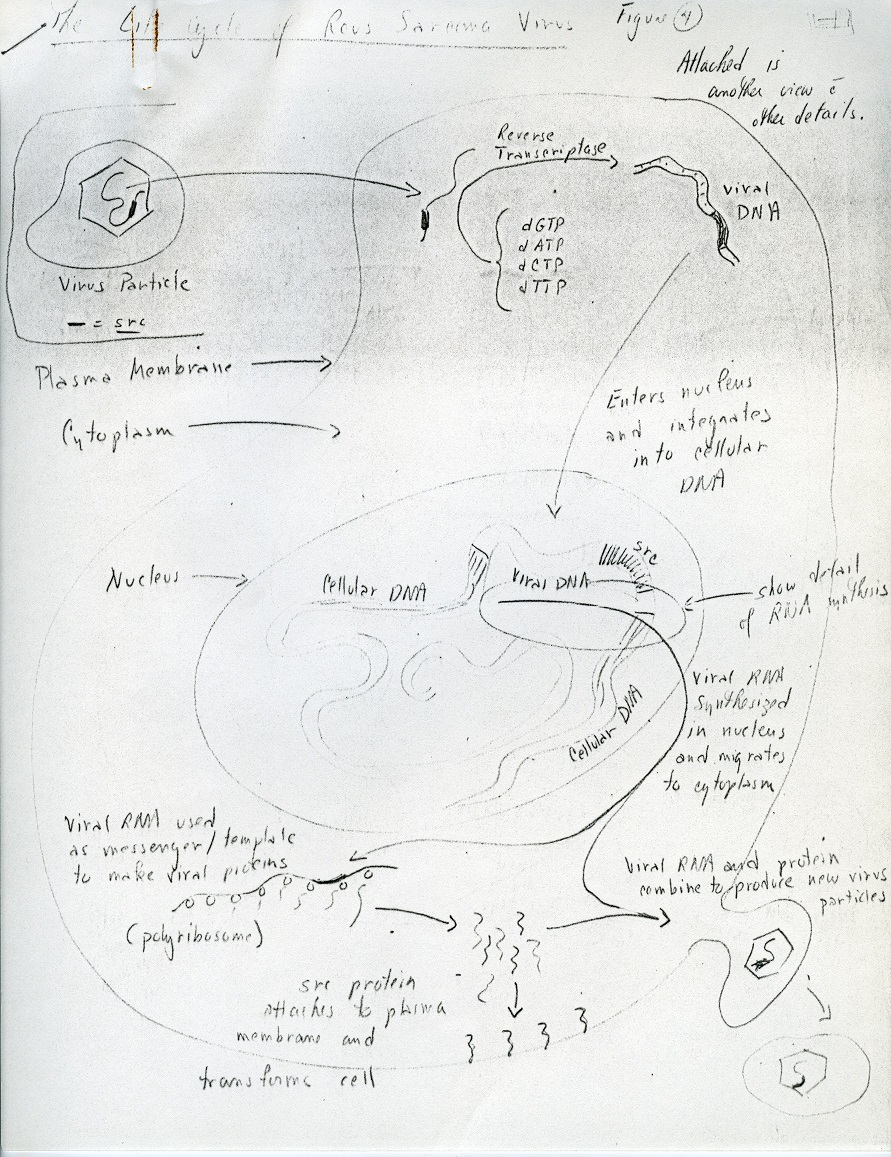 The Life Cycle of Rous Sarcoma Virus Figure 4
Attached is
another view c̄
other details.
Reverse
Transcriptase
Viral
DNA
dGTP
dATP
dCTP
dTTP
Virus Particle
— = src
Plasma Membrane
Cytoplasm
Enters nucleus
and integrates
into cellular
DNA
Nucleus
Cellular DNA
Viral DNA
src
show detail
of RNA synthesis
Cellular DNA
Viral RNA
synthesized
in nucleus
and migrates
to cytoplasm
Viral RNA used
as messenger/template
to make viral proteins
(polyribosome)
Viral RNA and protein
combine to produce new virus
particles
src protein
attaches to plasma
membrane and
transforms cell